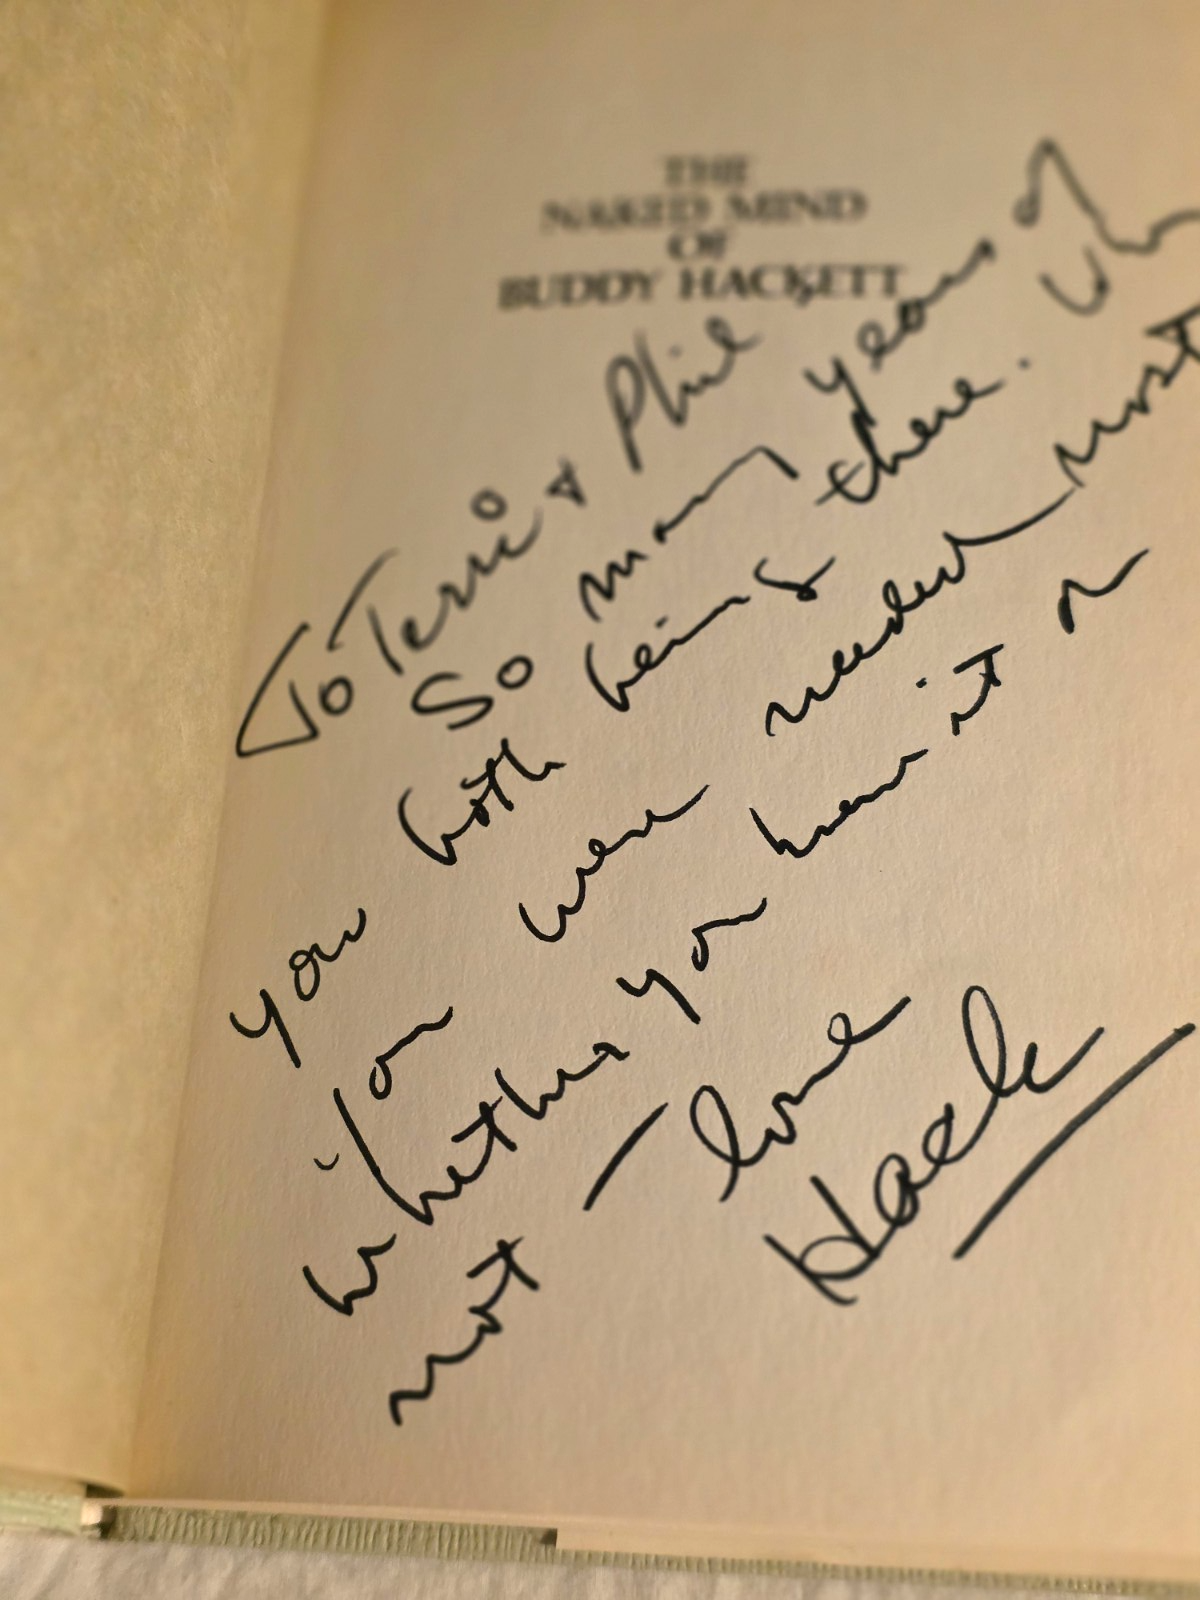 THE
NAKED MIND
OF
BUDDY HACKETT
To Terri & Phil
So many years of
you both being there.
you were needed most
whether you knew it or
not — Love
Hack